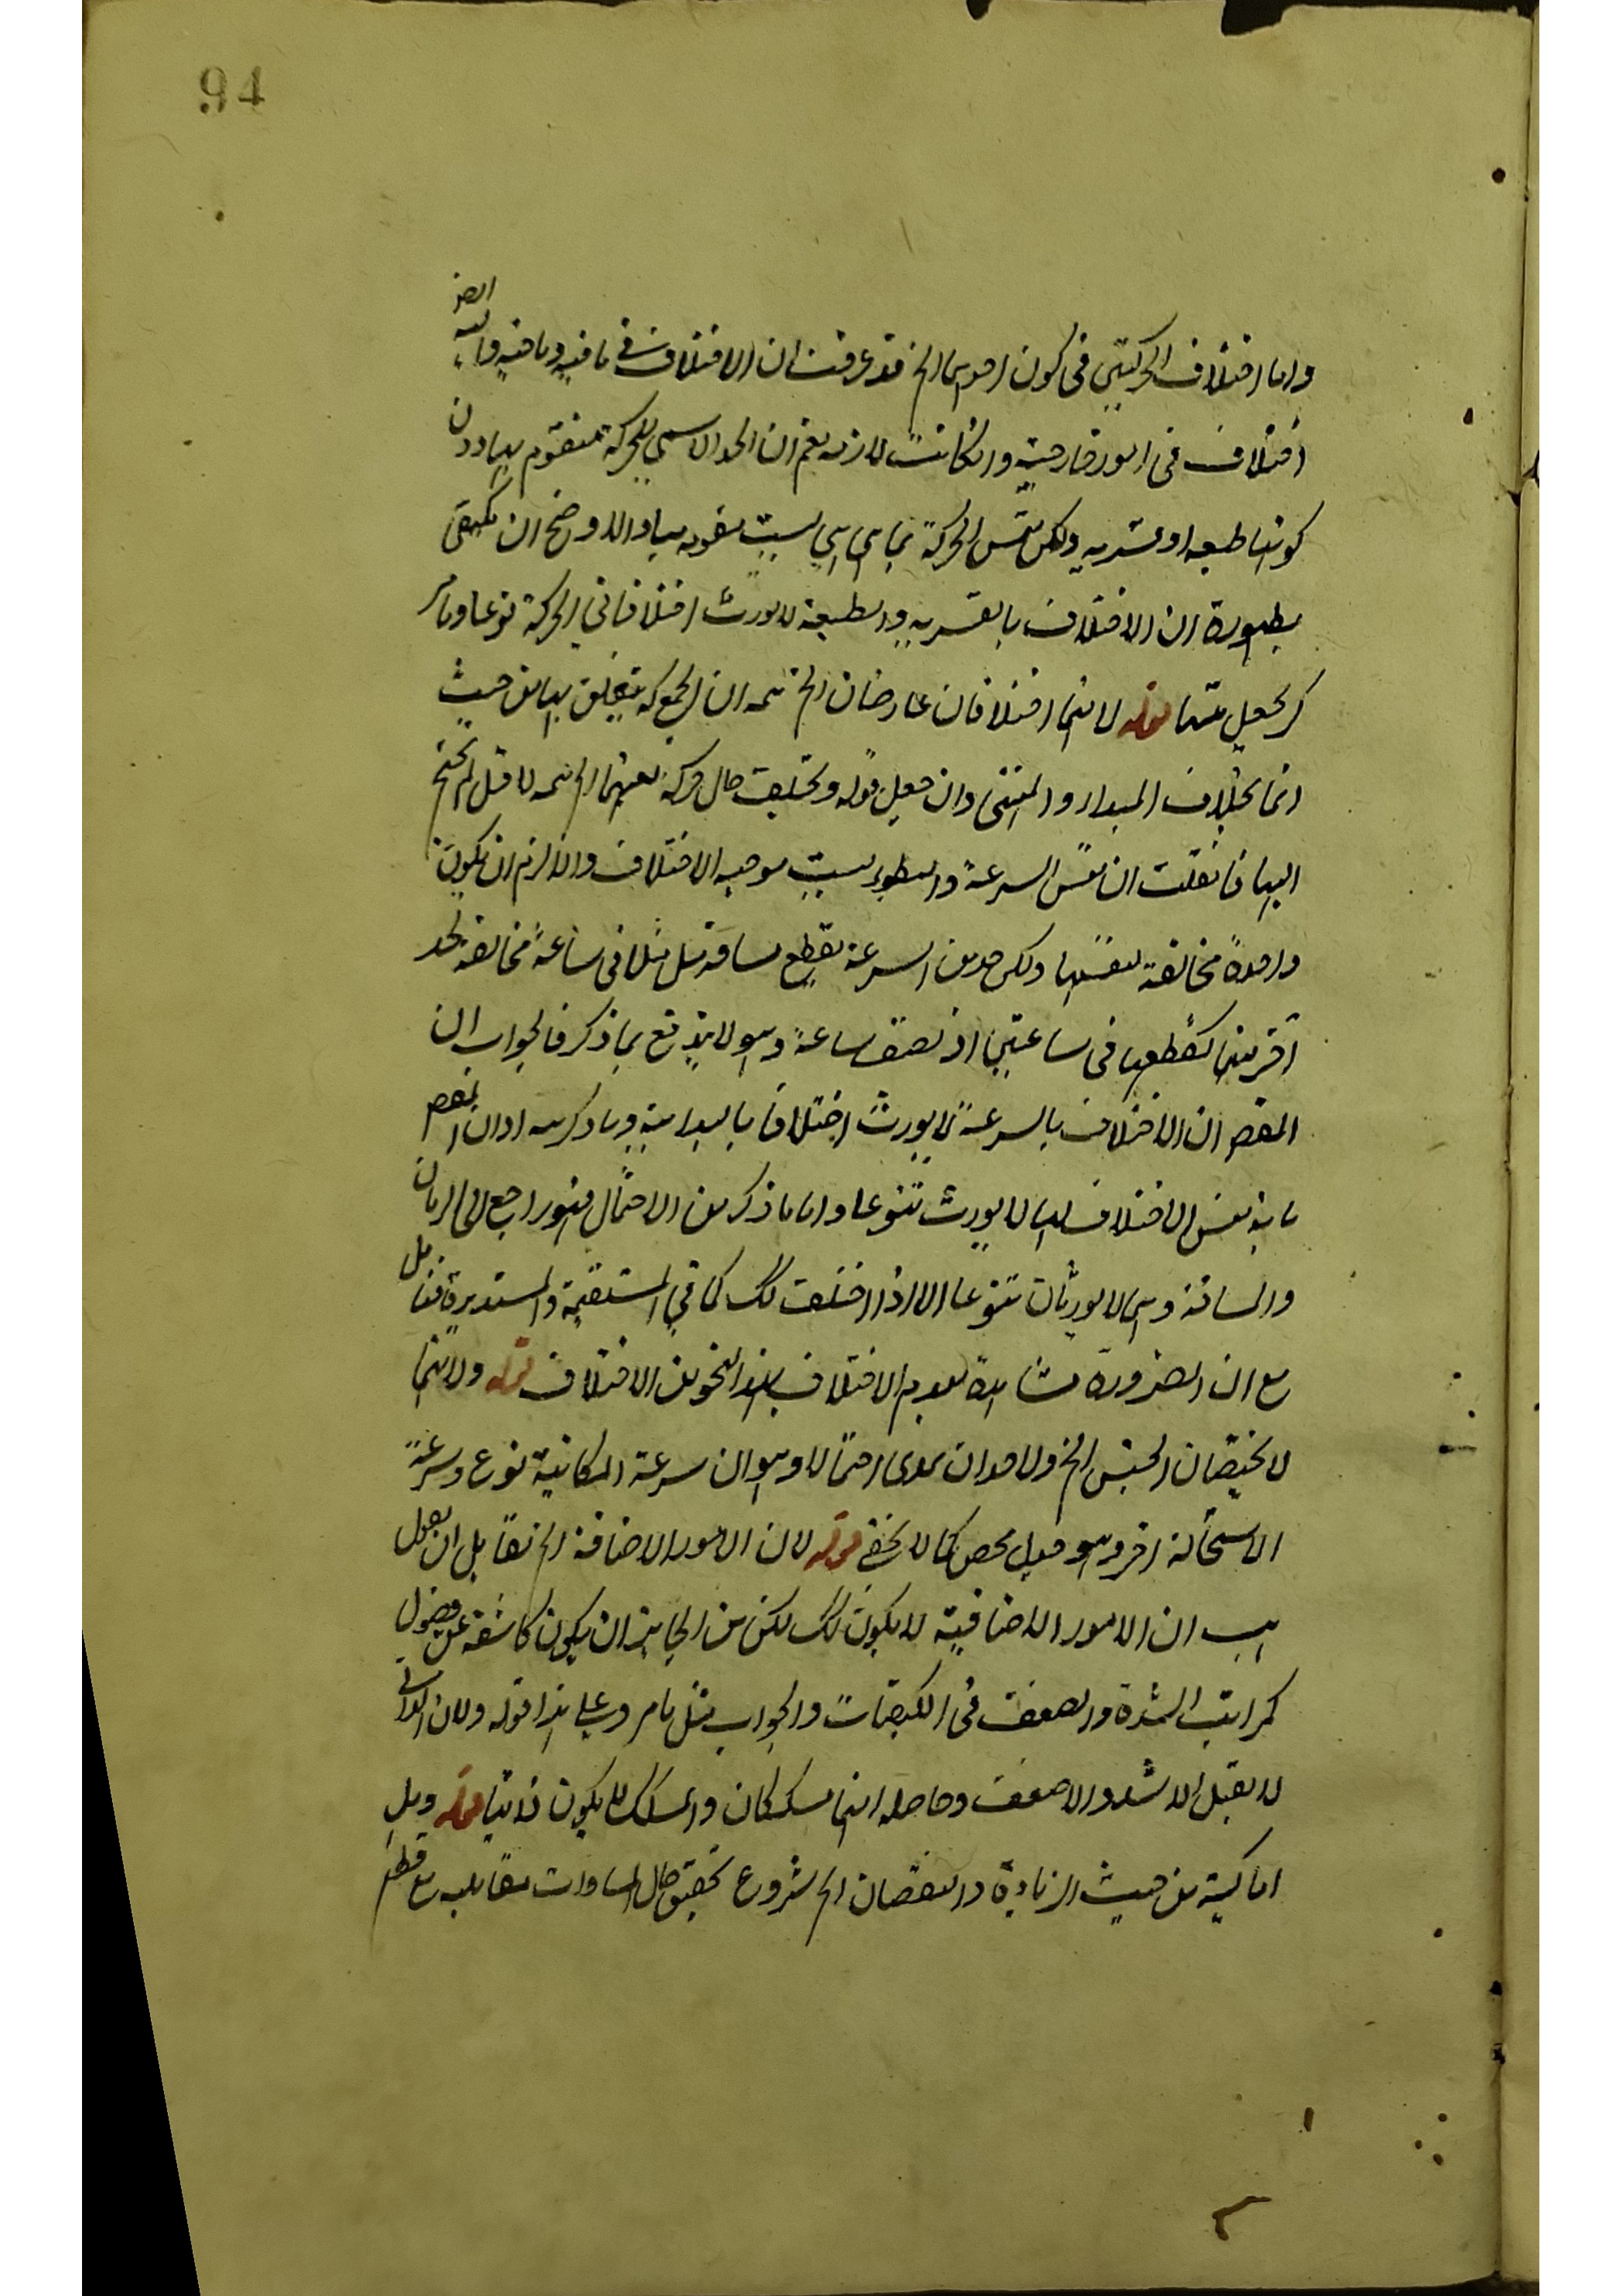 94
واما اختلاف الحركتين فى كون احدىهما الخ قد عرفت ان الاختلاف فى ما فيه وما منيه واليه ايضا
اختلاف فى امور خارجية وان كانت لازمة نعم ان الحد الاسمى للحركة متقوم بها دون
كونها طبعية او قسرية ولكن نفس الحركة بما هى هى ليست متقومة بها والا وضح ان يكتفى
بظهورة ان الاختلاف بالقسرية والطبعية لا يورث اختلافا فى الحركة نوعا وما مر
كر يجعل متمما قوله لانهما اختلافان عارضان الخ تتمه ان الجمع كه يتعلق بها من حيث
انما بخلاف المبداء والمنتهى وان جعل قوله ويختلف حال حركة بعينها الخ تتمه لا قبل لم يحتج
اليها فان قلت ان نفس السرعة والبطوء ليست موجبه الاختلاف والا لزم ان يكون
واحدة مخالفة لنفسها ولكن حد من السرعة يقطع مسافة مثل مثلا فى ساعة مخالفة لحد
آخر منها كقطعها فى ساعتين او نصف ساعة وهو لا يندفع بما ذكر فالجواب ان
المقص ان الاختلاف بالسرعة لا يورث اختلافا بالبداهة وما ذكر تنبيه او ان المقص
بانه نفس الاختلاف بها لا يورث تنوعا واما ما ذكر من الاحتمال فهو راجع الى الزمان
والمسافة وهى لا يورثان تنوعا الا اذا اختلفت لك كما فى المستقيمة والمستديرة فتامل
مع ان الضرورة شاهدة بعدم الاختلاف بهذا النحو من الاختلاف قوله ولانهما
لا يختصان الجنس الخ ولاحد ان يبدى احتمالا وهو ان سرعة المكانية نوع وسرعة
الاستحالة آخر وهو قول محض كما لا يخفى قوله لان الامور الاضافة الخ لقائل ان يقول
هب ان الامور الاضافية لا يكون لك لكن من الجايز ان يكون كاشفة عن فصول
كمراتب الشدة والضعف فى الكيفيات والجواب مثل ما مر وعلى هذا قوله ولان الذاتى
لا يقبل الاشد والاضعف وحاصله انهما مشككان والمشكك لا يكون ذاتيا قوله وبل
اما كية من حيث الزيادة والنقصان الخ شروع تحقيق حال المساوات مقابله مع قطع